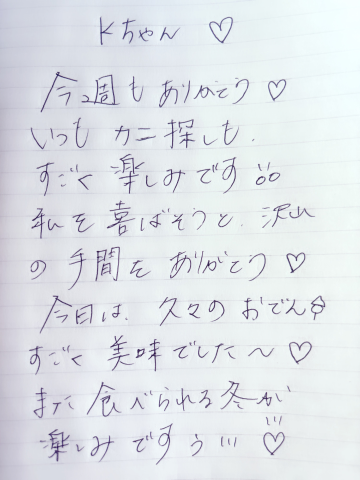 Kちゃん ♡
今週もありがとう♡
いつも カニ探しも、
すごく楽しみです
私を喜ばそうと、沢山
の手間をありがとう♡
今日は、久々のおでん
すごく美味でした〜♡
また食べられる冬が
楽しみですぅ ♡